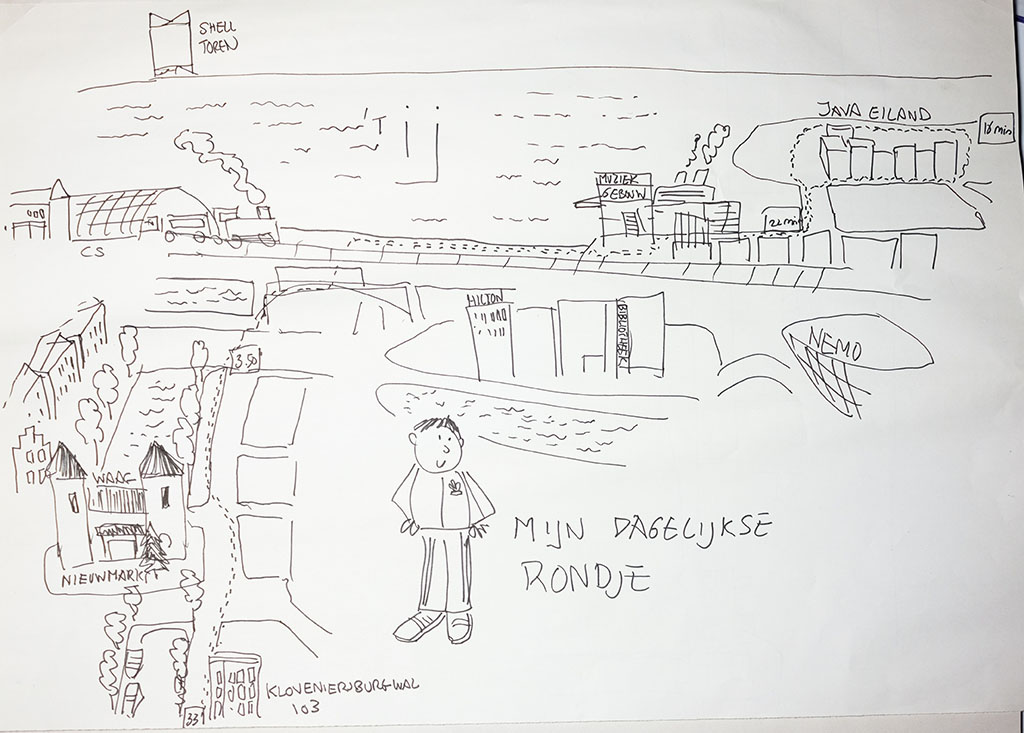 SHELL
TOREN
'T ij
JAVA EILAND
MUZIEK
GEBOUW
22 min
CS
HILTON
BIBLIOTHEEK
NEMO
3.50
WAAG
NIEUWMARKT
MIJN DAGELIJKSE
RONDJE
KLOVENIERSBURGWAL
103
33